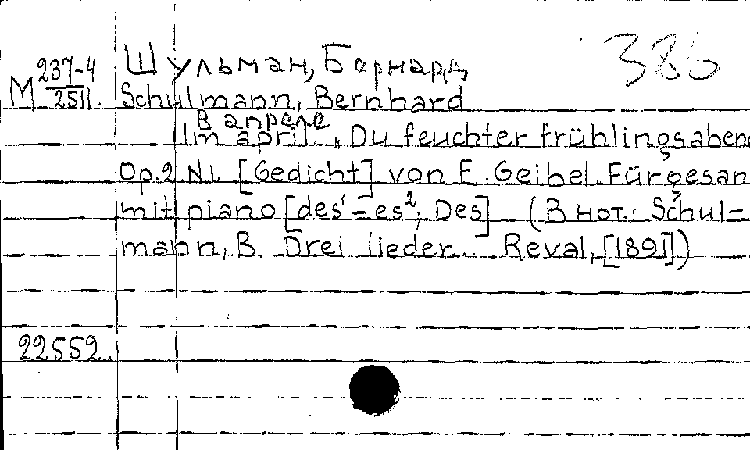 Шульман, Бернард 386
М 237-4/2511. Schulmann, Bernhard
В апреле
[Im april. „Du feuchter frühlingsaben
Op. 2 N1. [Gedicht] von E. Geibel. Für gesan
mit piano [des' – es², Des] (В нот.: Schul=
mann, B. Drei lieder. Reval, [1891])
22552.